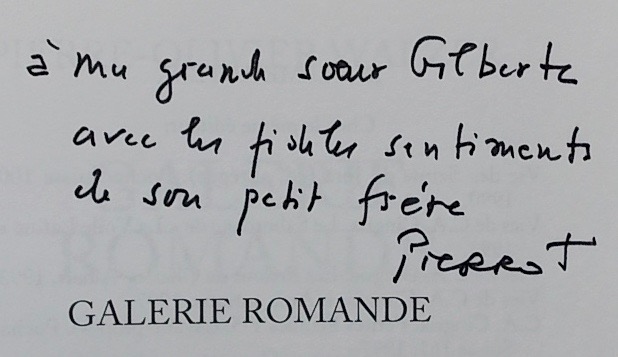 à ma grande sœur Gilberte
avec les fidèles sentiments
de son petit frère
Pierrot
GALERIE ROMANDE